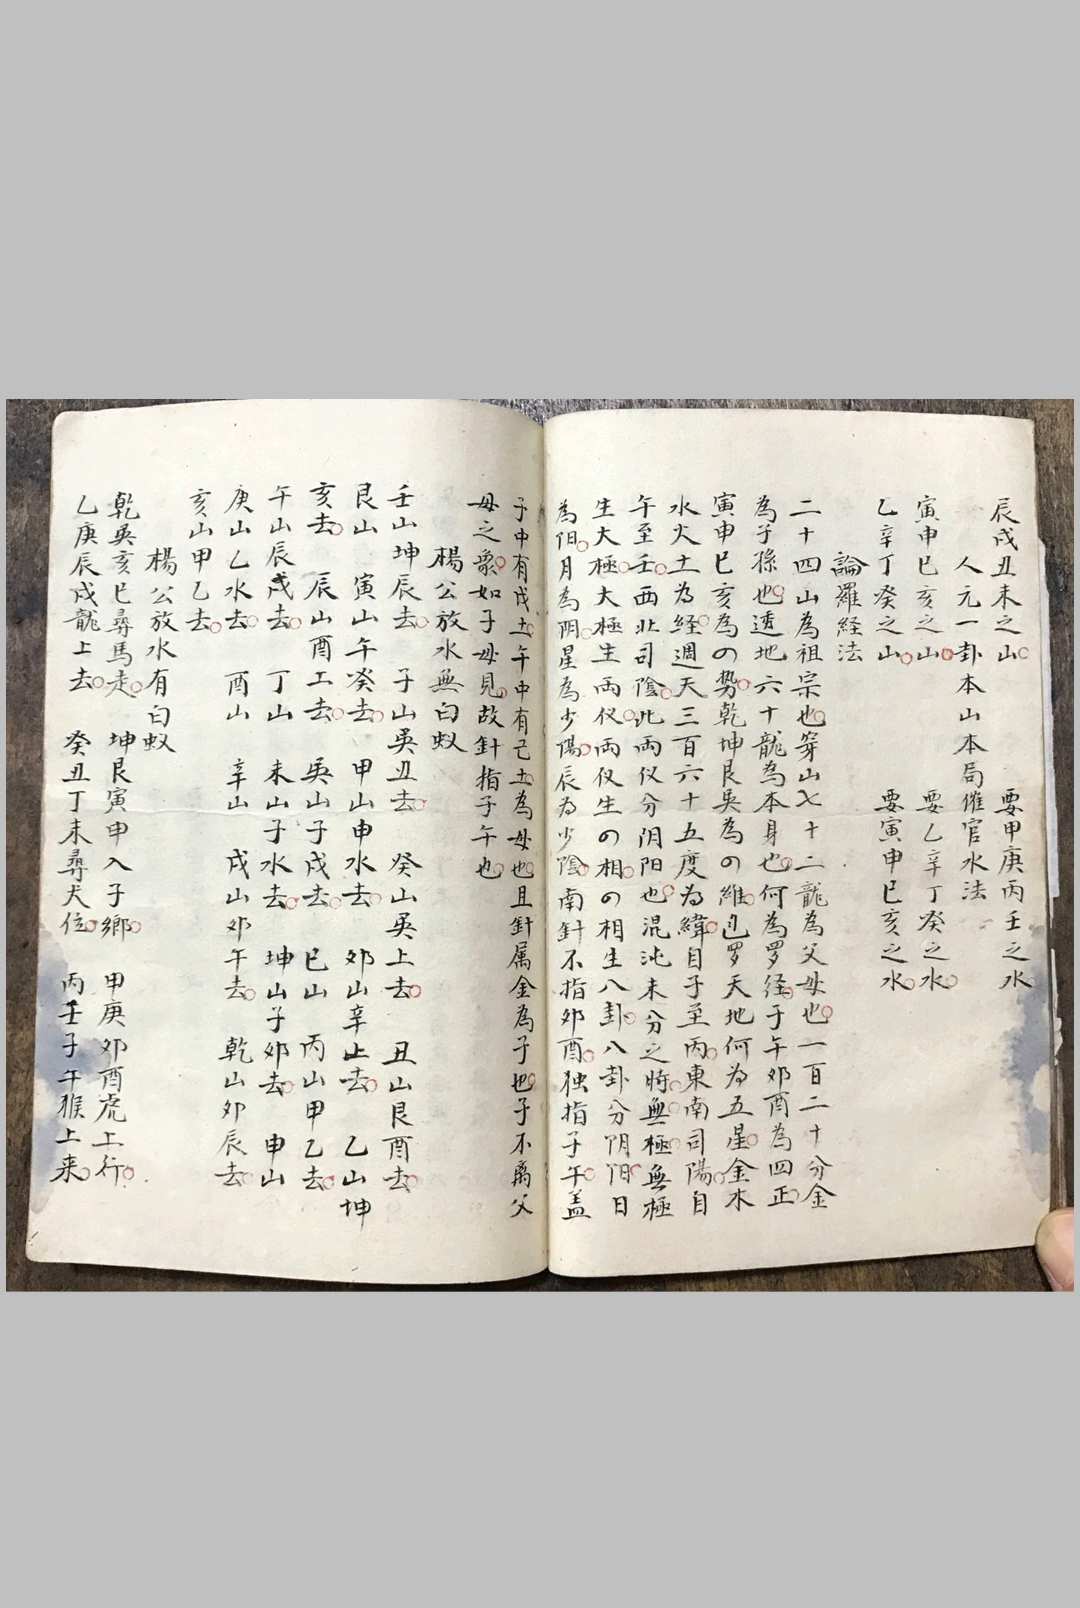 辰戌丑未之山　要甲庚丙壬之水
人元一卦本山本局催官水法
寅申巳亥之山　要乙辛丁癸之水
乙辛丁癸之山　要寅申巳亥之水
論羅経法
二十四山為祖宗也穿山七十二龍為父母也一百二十分金
為子孫也透地六十龍為本身也何為罗径子午卯酉為四正
寅申巳亥為の勢乾坤艮巽為の維包罗天地何為五星金木
水火土為経週天三百六十五度為緯自子至丙東南司陽自
午至壬西北司陰此両仪分阴阳也混沌未分之時無極無極
生大極大極生両仪両仪生の相の相生八卦八卦分阴阳日
為阳月為阴星為少陽辰為少陰南針不指卯酉独指子午盖
子中有戊土午中有己土為母也且針属金為子也子不离父
母之象如子母見故針指子午也
楊公放水無白蚁
壬山坤辰去　子山巽丑去　癸山巽上去　丑山艮酉去
艮山　寅山午癸去　甲山申水去　卯山辛止去　乙山坤
亥去　辰山酉工去　巽山子戌去　巳山　丙山甲乙去
午山辰戌去　丁山　未山子水去　坤山子卯去　申山
庚山乙水去　酉山　辛山　戌山卯午去　乾山卯辰去
亥山甲乙去
楊公放水有白蚁
乾巽亥巳尋馬走　坤艮寅申入子鄉　甲庚卯酉虎上行
乙庚辰戌龍上去　癸丑丁未尋犬位　丙壬子午猴上来